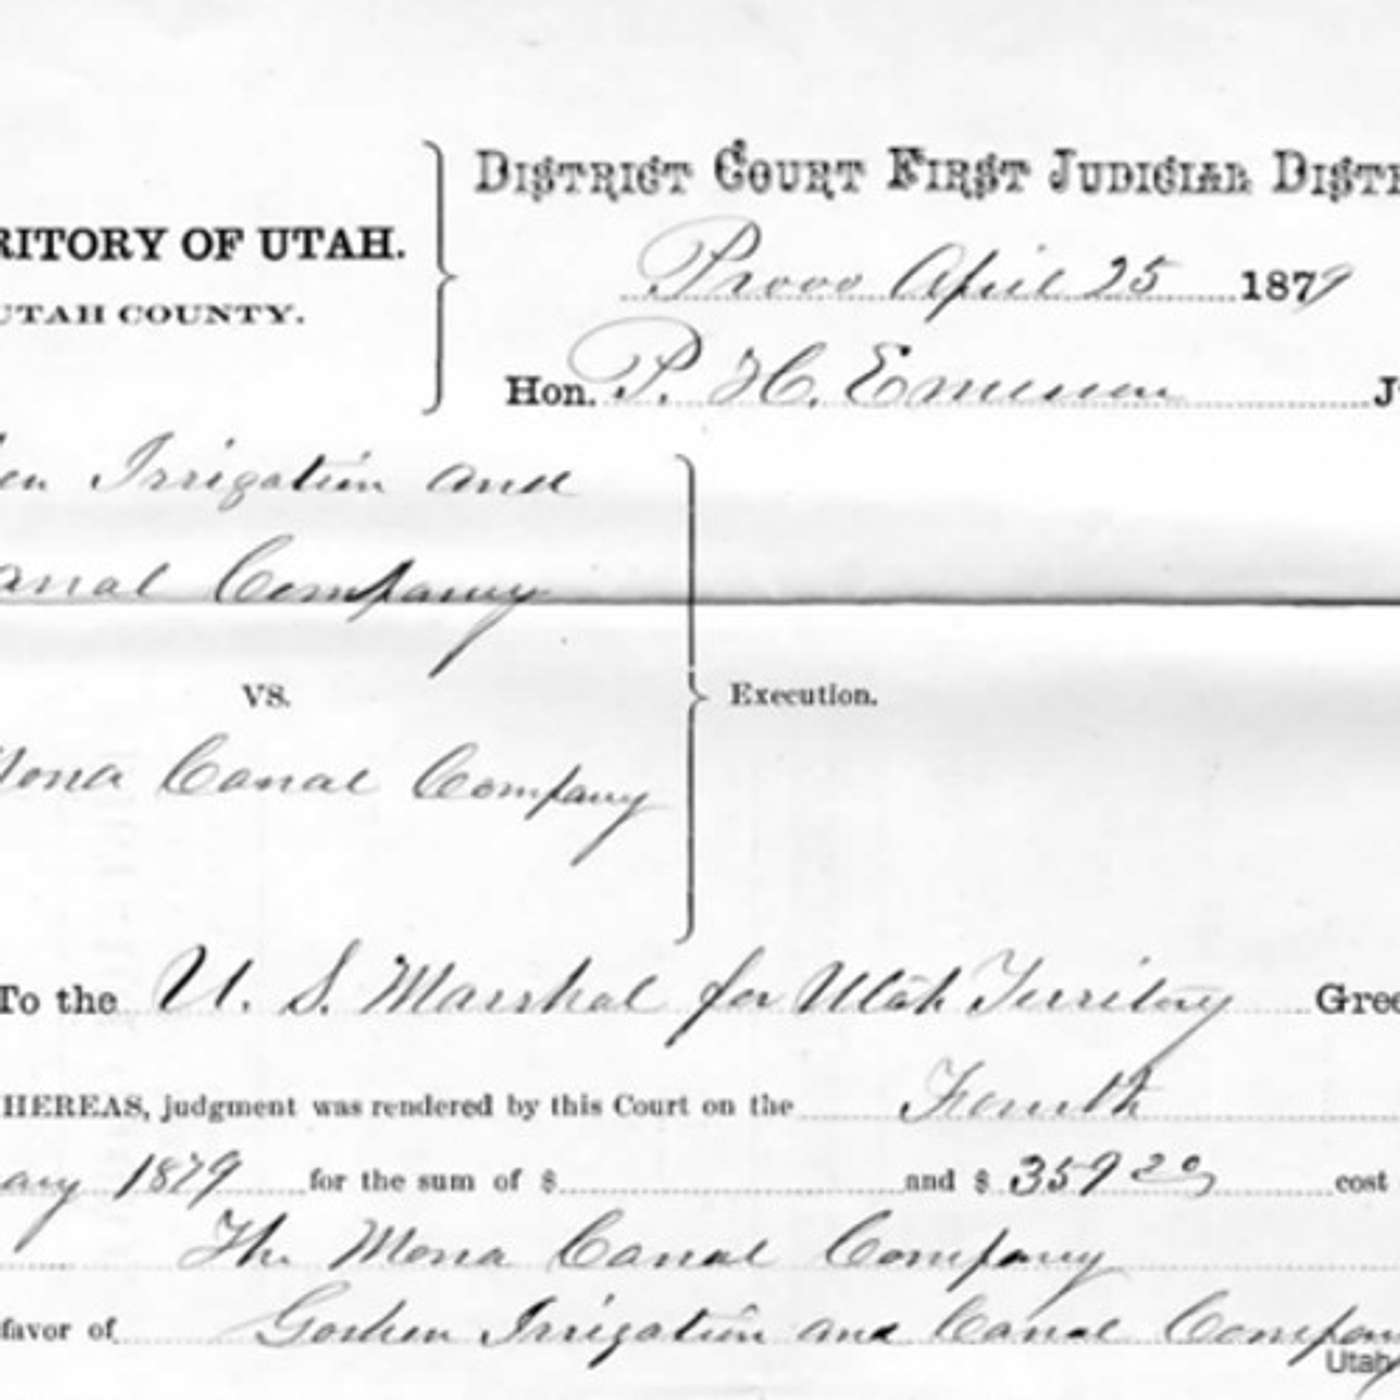 DISTRICT COURT FIRST JUDICIAL DISTR
RITORY OF UTAH.
Provo April 25 1879
UTAH COUNTY.
Hon. P. H. Emerson J
en Irrigation and
anal Company
VS.
Execution.
Mona Canal Company
To the U. S. Marshal for Utah Territory Gree
HEREAS, judgment was rendered by this Court on the Fourth
ary 1879 for the sum of $ and $ 359 20 cost
The Mona Canal Company
favor of Goshen Irrigation and Canal Compan
Utah